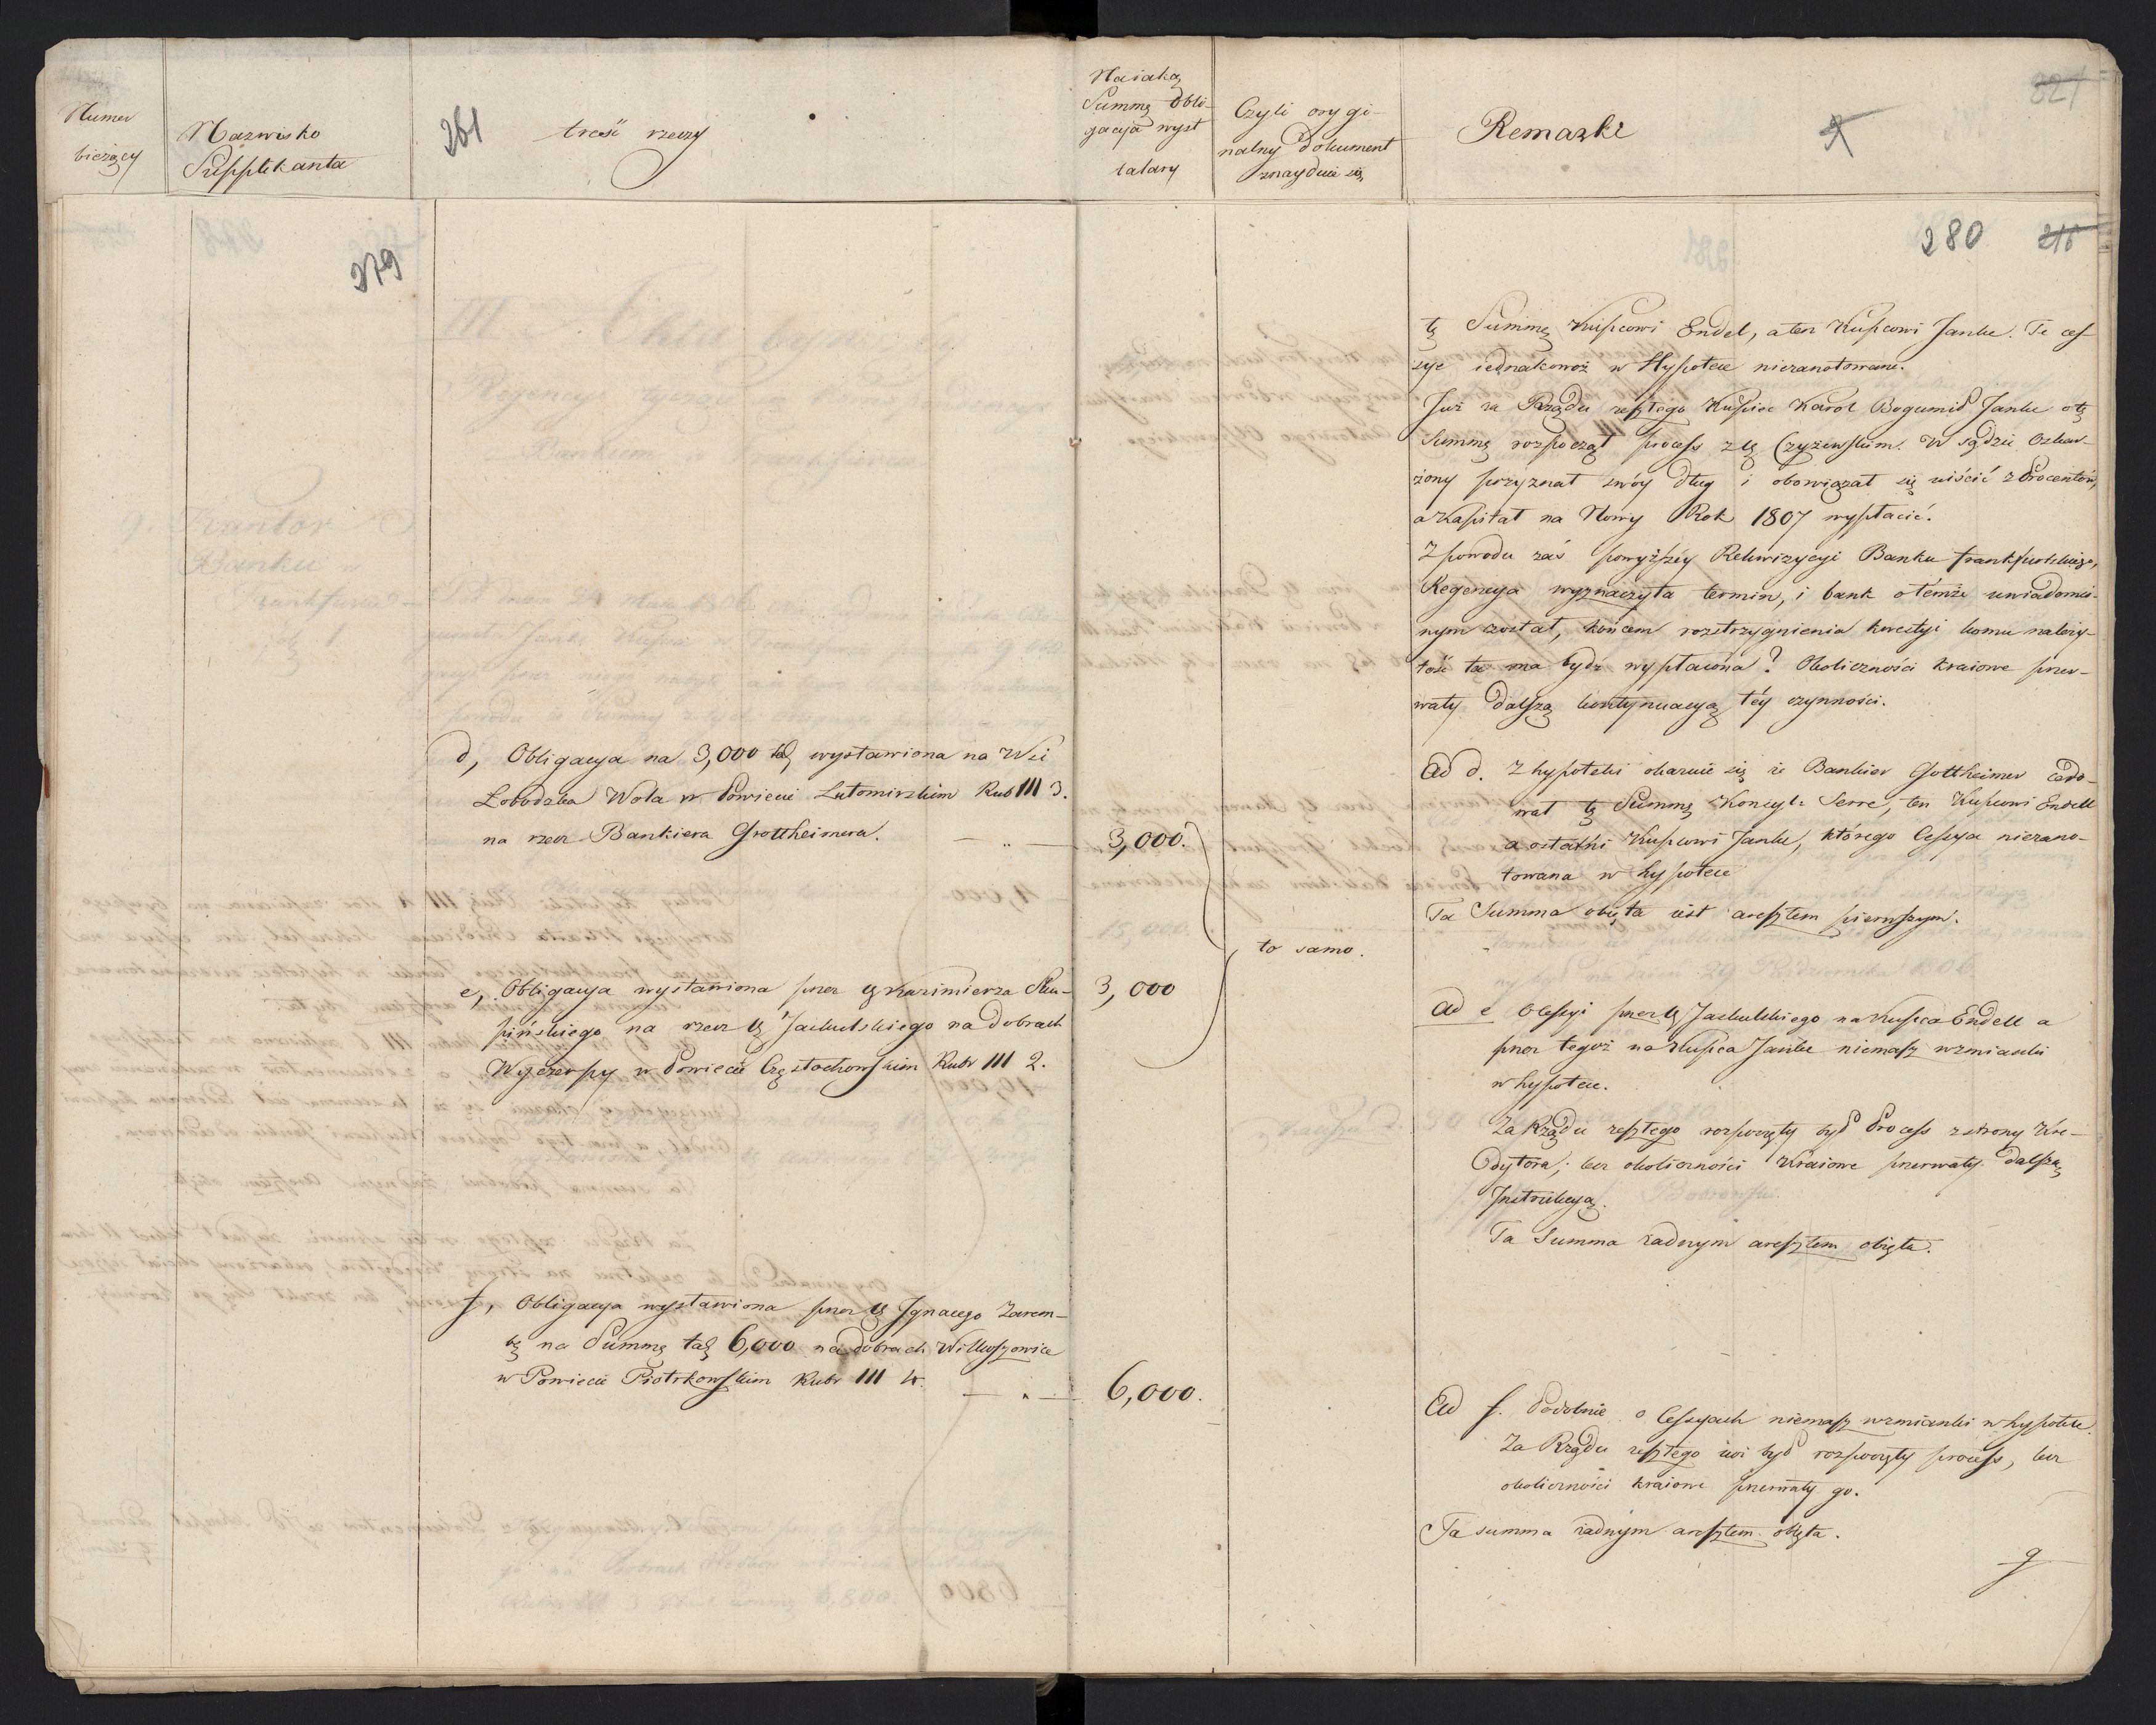 Numer
bieżący
Nazwisko
Supplikanta
261
treść rzeczy
Na iaką
Summę Obli-
gacya wyst
talary
Czyli orygi-
nalny dokument
znayduie się
Remarki
321
279
280
216
d, Obligacya na 3,000 tal, wystawiona na Wsi
Łobodzka Wola w Powiecie Lutomirskim Rub III 3.
na rzecz Bankiera Gottheimera.
3,000.
e, Obligacya wystawiona przez Kazimierza Sku-
pińskiego na rzecz Jackulskiego na dobrach
Wyczerpy w Powiecie Częstochowskim Rubr III 2.
3,000
to samo.
f, Obligacya wystawiona przez Ignacego Zarem-
bę na Summę tal 6,000 na dobrach Witkoszowice
w Powiecie Piotrkowskim Rubr III 4.
6,000.
tę Summę Kupcowi Endel, a ten Kupcowi Janke. Te ces-
sye iednakowoż w Hypotece niezanotowane.
Już za Rządu zeszłego Kupiec Karol Bogumił Janke o tę
Summę rozpoczął process z Czyżewskim. W sądzie Oskar-
żony przyznał swóy dług i obowiązał się uiścić z Procentów,
a Kapitał na Nowy Rok 1807 wypłacić.
Z powodu zaś powyższey Rekwizycyi Banku frankfurtskiego,
Regencya wyznaczyła termin, i bank o témże uwiadomio-
nym został, końcem rozstrzygnienia kwestyi komu należy-
tość ta ma bydź wypłacona? Okoliczności kraiowe przer-
wały dalszą kontynuacyą téy czynności.
Ad d. Z hypoteki okazuie się że Bankier Gottheimer cedo-
wał tę Summę Konsyl: Serre, ten Kupcowi Endell
a ostatni Kupcowi Janke, którego Cessya niezano-
towana w hypotece
Ta Summa obięta iest aresztem pierwszym.
Ad e O Cessyi przez Jackulskiego na Kupca Endell a
przez tegoż na Kupca Janke niemasz wzmianki
w hypotece.
Za Rządu zeszłego rozpoczęty był Process z strony Kre-
dytora; lecz okoliczności Kraiowe przerwały dalszą
Instrukcyą.
Ta Summa żadnym aresztem obięta.
Ad f. Podobnie o Cessyach niemasz wzmianki w hypotece.
Za Rządu zeszłego iuż był rozpoczęty process, lecz
okoliczności kraiowe przerwały go.
Ta summa żadnym aresztem obięta.
g